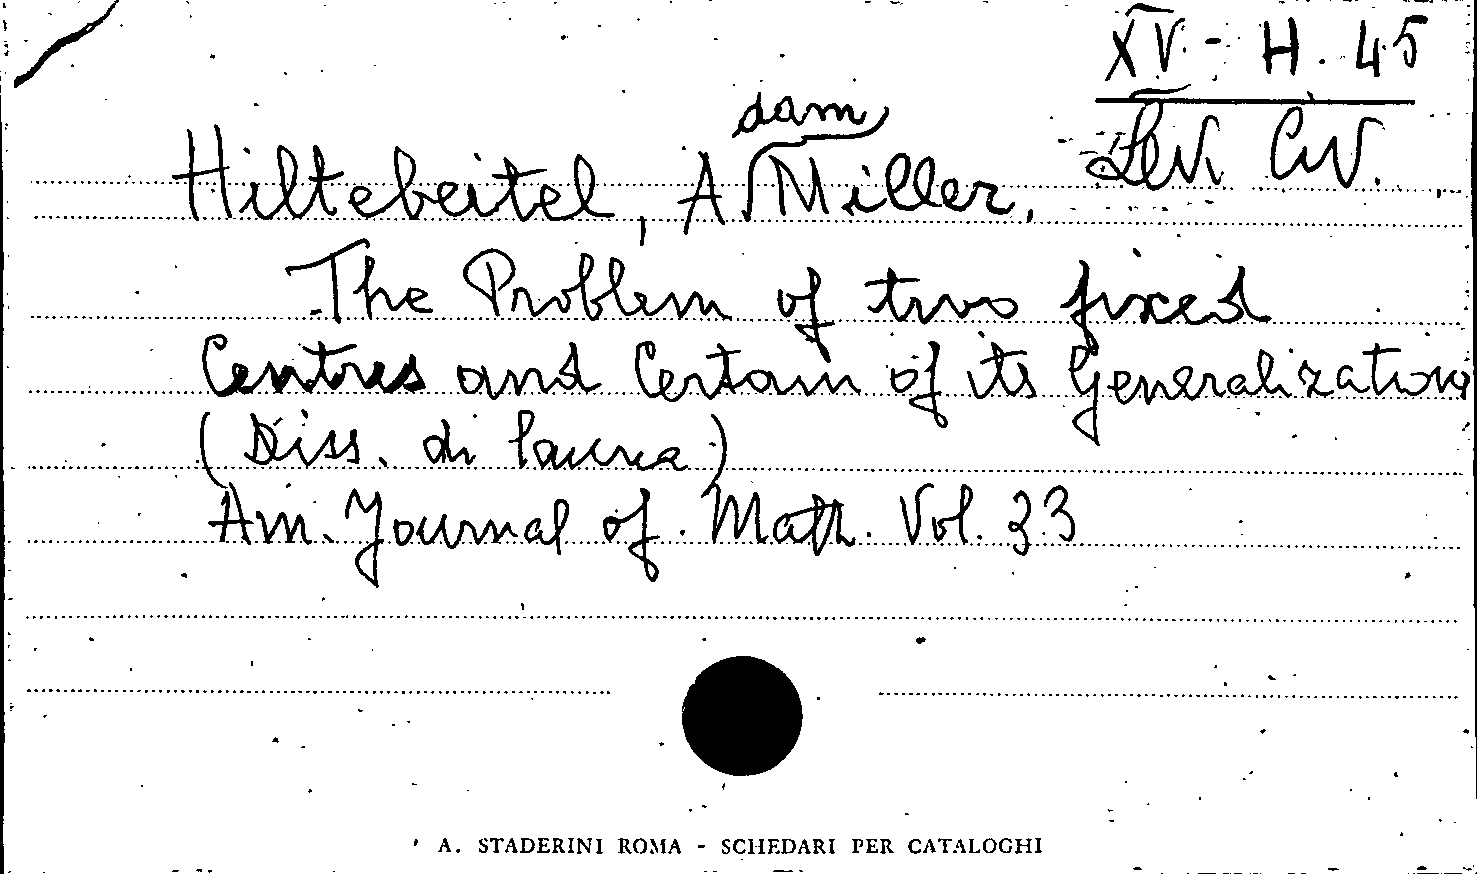 XV - H. 45
Lev. Civ.
Hiltebeitel, Adam Miller.
The Problem of two fixed
Centres and Certain of its Generalizations
(Diss. di laurea)
Am. Journal of Math. Vol. 33
A. STADERINI ROMA - SCHEDARI PER CATALOGHI